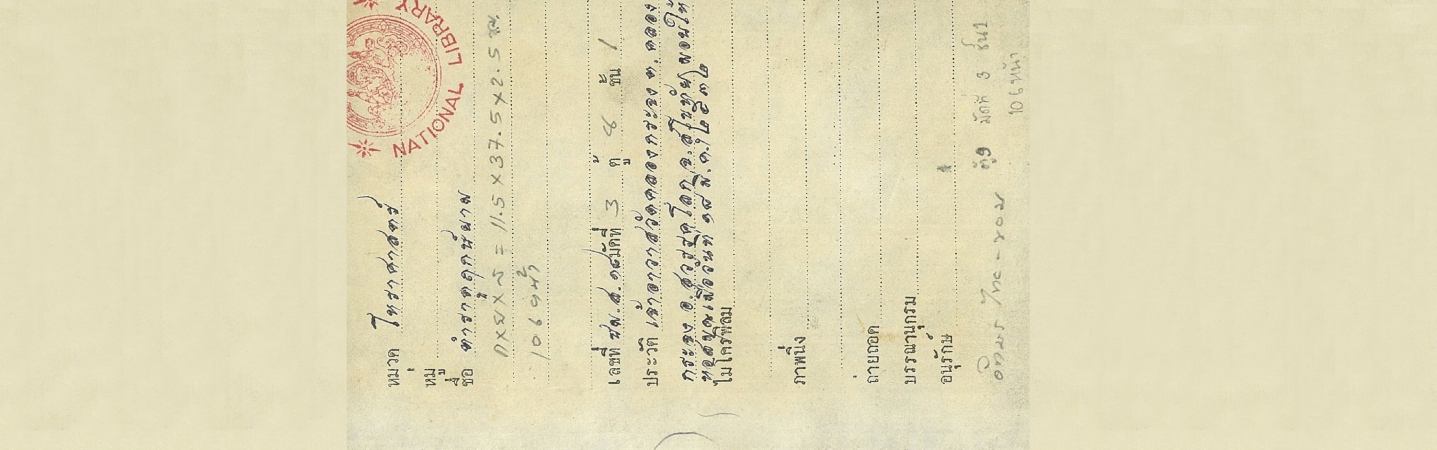 NATIONAL LIBRARY
หมวด โหราศาสตร์
หมู่
ชื่อ ตำราดูฤกษ์ยาม
กxยxส = 11.5 x 37.5 x 2.5 ซม.
106 หน้า
เลขที่ มัดที่ 3 ตู้ ชั้น 1
ประวัติ เจ้าอาวาสวัดคลองกระจง ต. คลอง
กระจง อ. สวรรคโลก จ. สุโขทัย มอบให้
หอสมุดเมื่อวันที่
ไมโครฟิล์ม
ภาพนิ่ง
ถ่ายถอด
บรรณานุกรม
อนุรักษ์
อักษร ไทย - ขอม ตู้9 มัดที่ 3 ชั้น1
106 หน้า